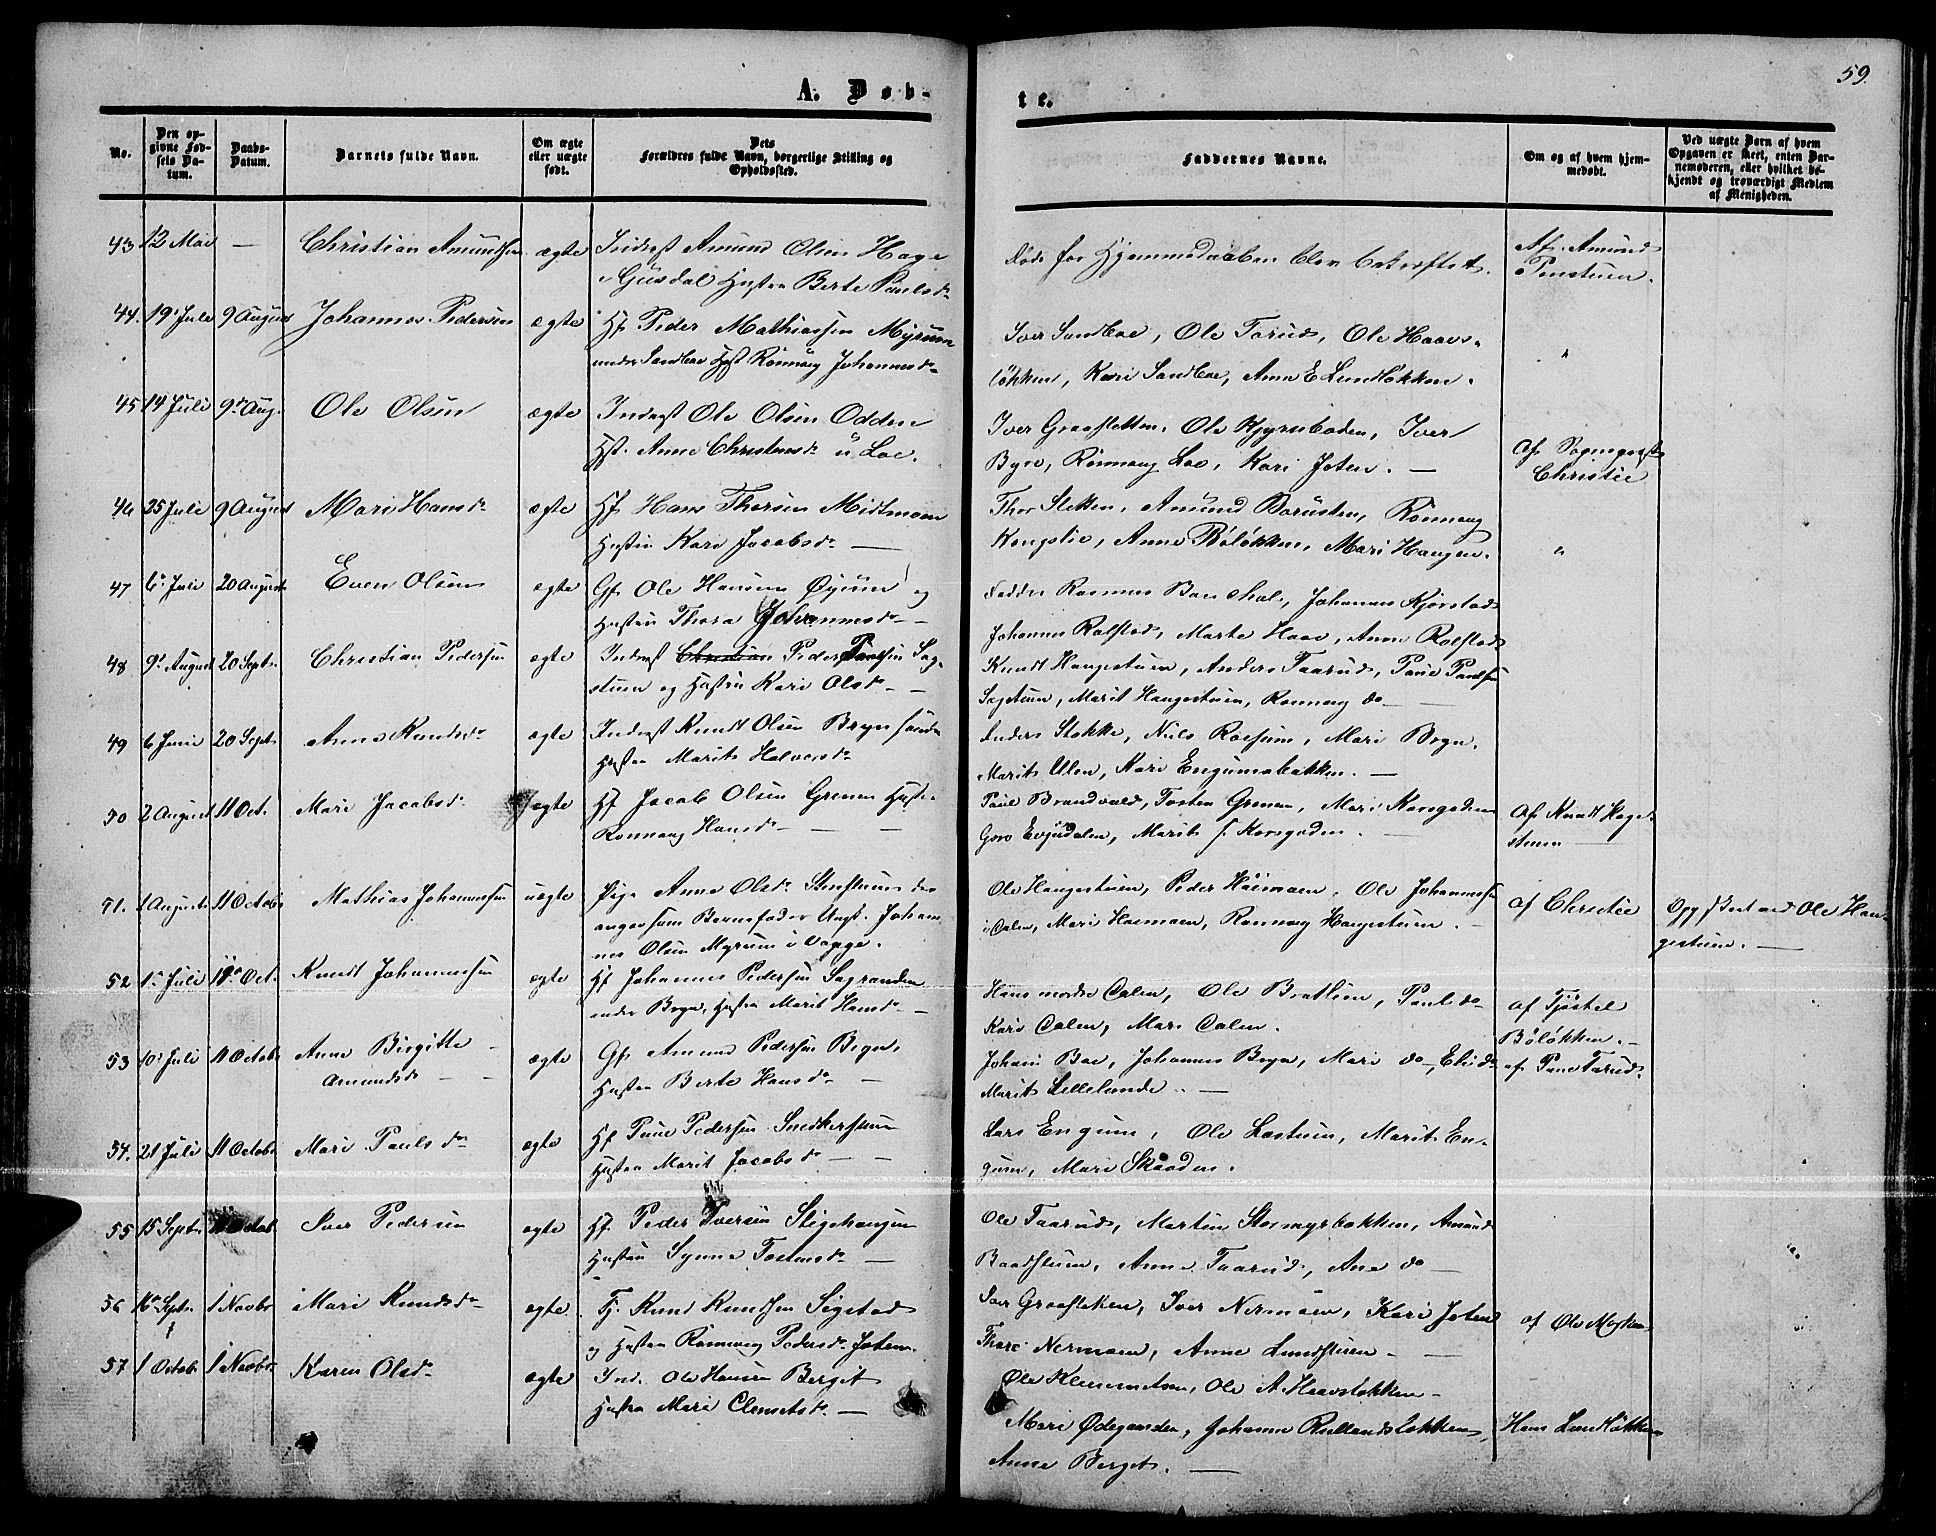 59.
A. Døb-
te.
No.
Den op-
givne Fød-
sels Da-
tum.
Daabs-
Datum.
Barnets fulde Navn.
Om ægte
eller uægte
født.
Dets
Forældres fulde Navn, borgerlige Stilling og
Opholdssted.
Faddernes Navne.
Om og af hvem hjem-
medøbt.
Ved uægte Børn af hvem
Opgaven er skeet, enten Bar-
nemoderen, eller hvilket be-
kjendt og troværdigt Medlem
af Menigheden.
43 12 Mai — Christian Amundsen ægte Inderst Amund Olsen Hage
Gusdal Hustru Berte Paulsd.
Døde før Hjemmedaaben blev bekræftet.
Af Amund
44. 19 Juli 9 August Johannes Pedersen ægte Hf Peder Mathiassen Myrum
under Sandboe Hust Rønnaug Johannesd.
Iver Sandboe, Ole Tarud, Ole Haavs-
løkken, Kari Sandboe, Anne E Lundløkken.
"
45 14 Juli 9 Aug. Ole Olsen ægte Inderst Ole Olsen Odden
Hst. Anne Christensd. u Loe.
Iver Graasletten, Ole Kjyrnboden, Iver
Byre, Rønnaug Loe, Kari Joten. —
af Sogneprest
Christie
46 25 Juli 9 August Mari Hansd. ægte Hf Hans Thorsen Midtmoen
Hustru Kari Jacobsd. —
Thor Sletten, Amund Borusten, Rønnaug
Kongslie, Anne Bøløkken, Mari Haugen.
"
47 6 Juli 20 August Even Olsen ægte Gf Ole Hansen Øyum og
Hustru Thora Johannesd. —
Faddr Rasmus Johannes Kjørstad
Johannes Rolstad, Marte Haav, Anne Rolstad
48 9 August 20 Sept. Christian Pedersen ægte Inderst Christian Peder Paulsen Sag-
stuen og Hustru Kari Olsd. —
Knudt Haugestuen, Anders Taarud, Paul Paulsen
Sagstuen, Marit Haugestuen, Rønnaug do —
49 6 Juni 20 Sept Anne Knudsd. ægte Inderst Knudt Olsen Bryn
Hustru Marit Halvorsd.
Anders Stokke, Niels Roesum, Mari Bryn,
Marit Ulen, Kari Engumsbakken. —
50 2 August 11 Oct. Mari Jacobsd. ægte Hf Jacob Olsen Grenen Hust.
Rønnaug Hansd. — —
Paul Brandvold, Tosten Grenen, Mari Korsgaden
Goro Evjudalen, Marit Korsgaden. —
af Knudt Hage-
stuen —
51. 1 August 11 Octob. Mathias Johannesen uægte Pige Anne Olsd. der
angav som Barnefader Ungk. Johan-
nes Olsen Myrum i Vaage.
Ole Haugestuen, Peder Høimoen, Ole Johannesen
i Calen, Mari Høimoen, Rønnaug Haugestuen. —
af Christie
Opg Ole Hau-
gestuen. —
52 1 Juli 11 Oct. Knudt Johannesen ægte Hf Johannes Pedersen Sagranden
under Bryn, Hustru Marit Hansd. —
Hans nordre Calen, Ole Bratlien, Paul do
Kari Calen, Mari Calen.
af Tjøstel
Bøløkken. —
53 10 Juli 11 Octob. Anne Birgitte —
Amundsd. — —
ægte Gf Amund Pedersen Bryn,
Hustru Berte Hansd. —
Johan Boe, Johannes Bryn, Mari do, Eli do
Marit Lillelunde. —
af Paul Tarud.
54. 21 Juli 11 Octob. Mari Paulsd. ægte Hf Paul Pedersen Snedkerstuen
Hustru Marit Jacobsd. — —
Lars Engum, Ole Lostuen, Marit En-
gum, Mari Skaaden.
55 15 Sept. 11 Octob. Iver Pedersen ægte Hf Peder Iversen Stigehaugen
Hustru Synne Tostensd. —
Ole Taarud, Martin Stormyrbakken, Amund
Baadstuen, Anne Taarud, Ane do —
56 16 Sept. 1 Novbr Mari Knudsd. ægte. Tj. Knud Knudsen Sigstad
og Hustru Rønnaug Pedersd. Joten
Iver Graasletten, Iver Nermoen, Kari Joten
Nermoen, Anne Lundstuen — —
af Ole
57 1 Octob. 1 Novbr Karen Olsd. ægte Ind. Ole Hansen Berget
Hustru Mari Clemetsd. —
Ole Klemmetsen, Ole A. Haavsløkken —
Mari Ødegaarden, Johanne Rullandsløkken,
Anne Berget. —
Hans Lundløkken